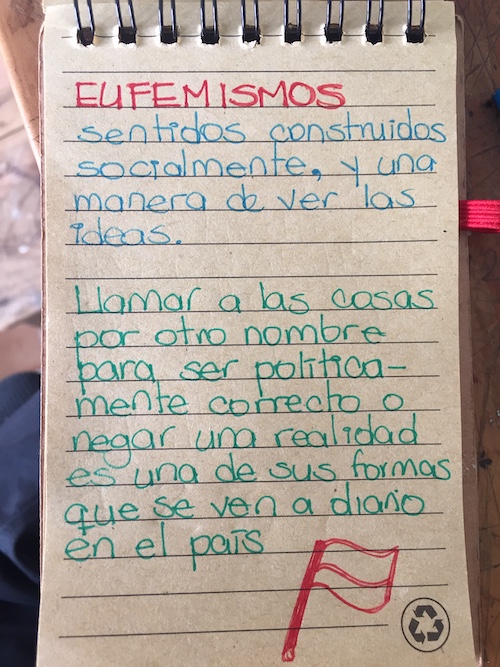 EUFEMISMOS
sentidos construidos
socialmente, y una
manera de ver las
ideas.
Llamar a las cosas
por otro nombre
para ser política-
mente correcto o
negar una realidad
es una de sus formas
que se ven a diario
en el país